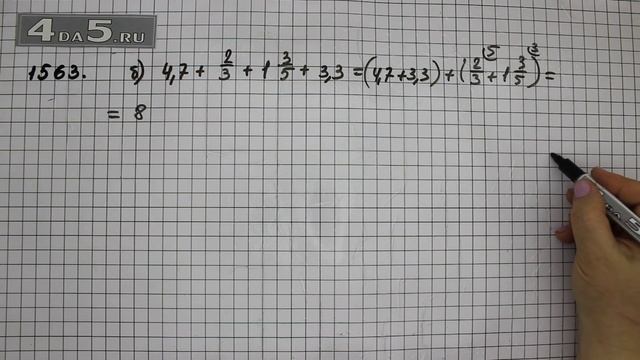 4DA5.RU
1563. б) 4,7 + 2/3 + 1 3/5 + 3,3 = (4,7+3,3) + (2/3 ⁵ + 1 3/5 ³) =
= 8